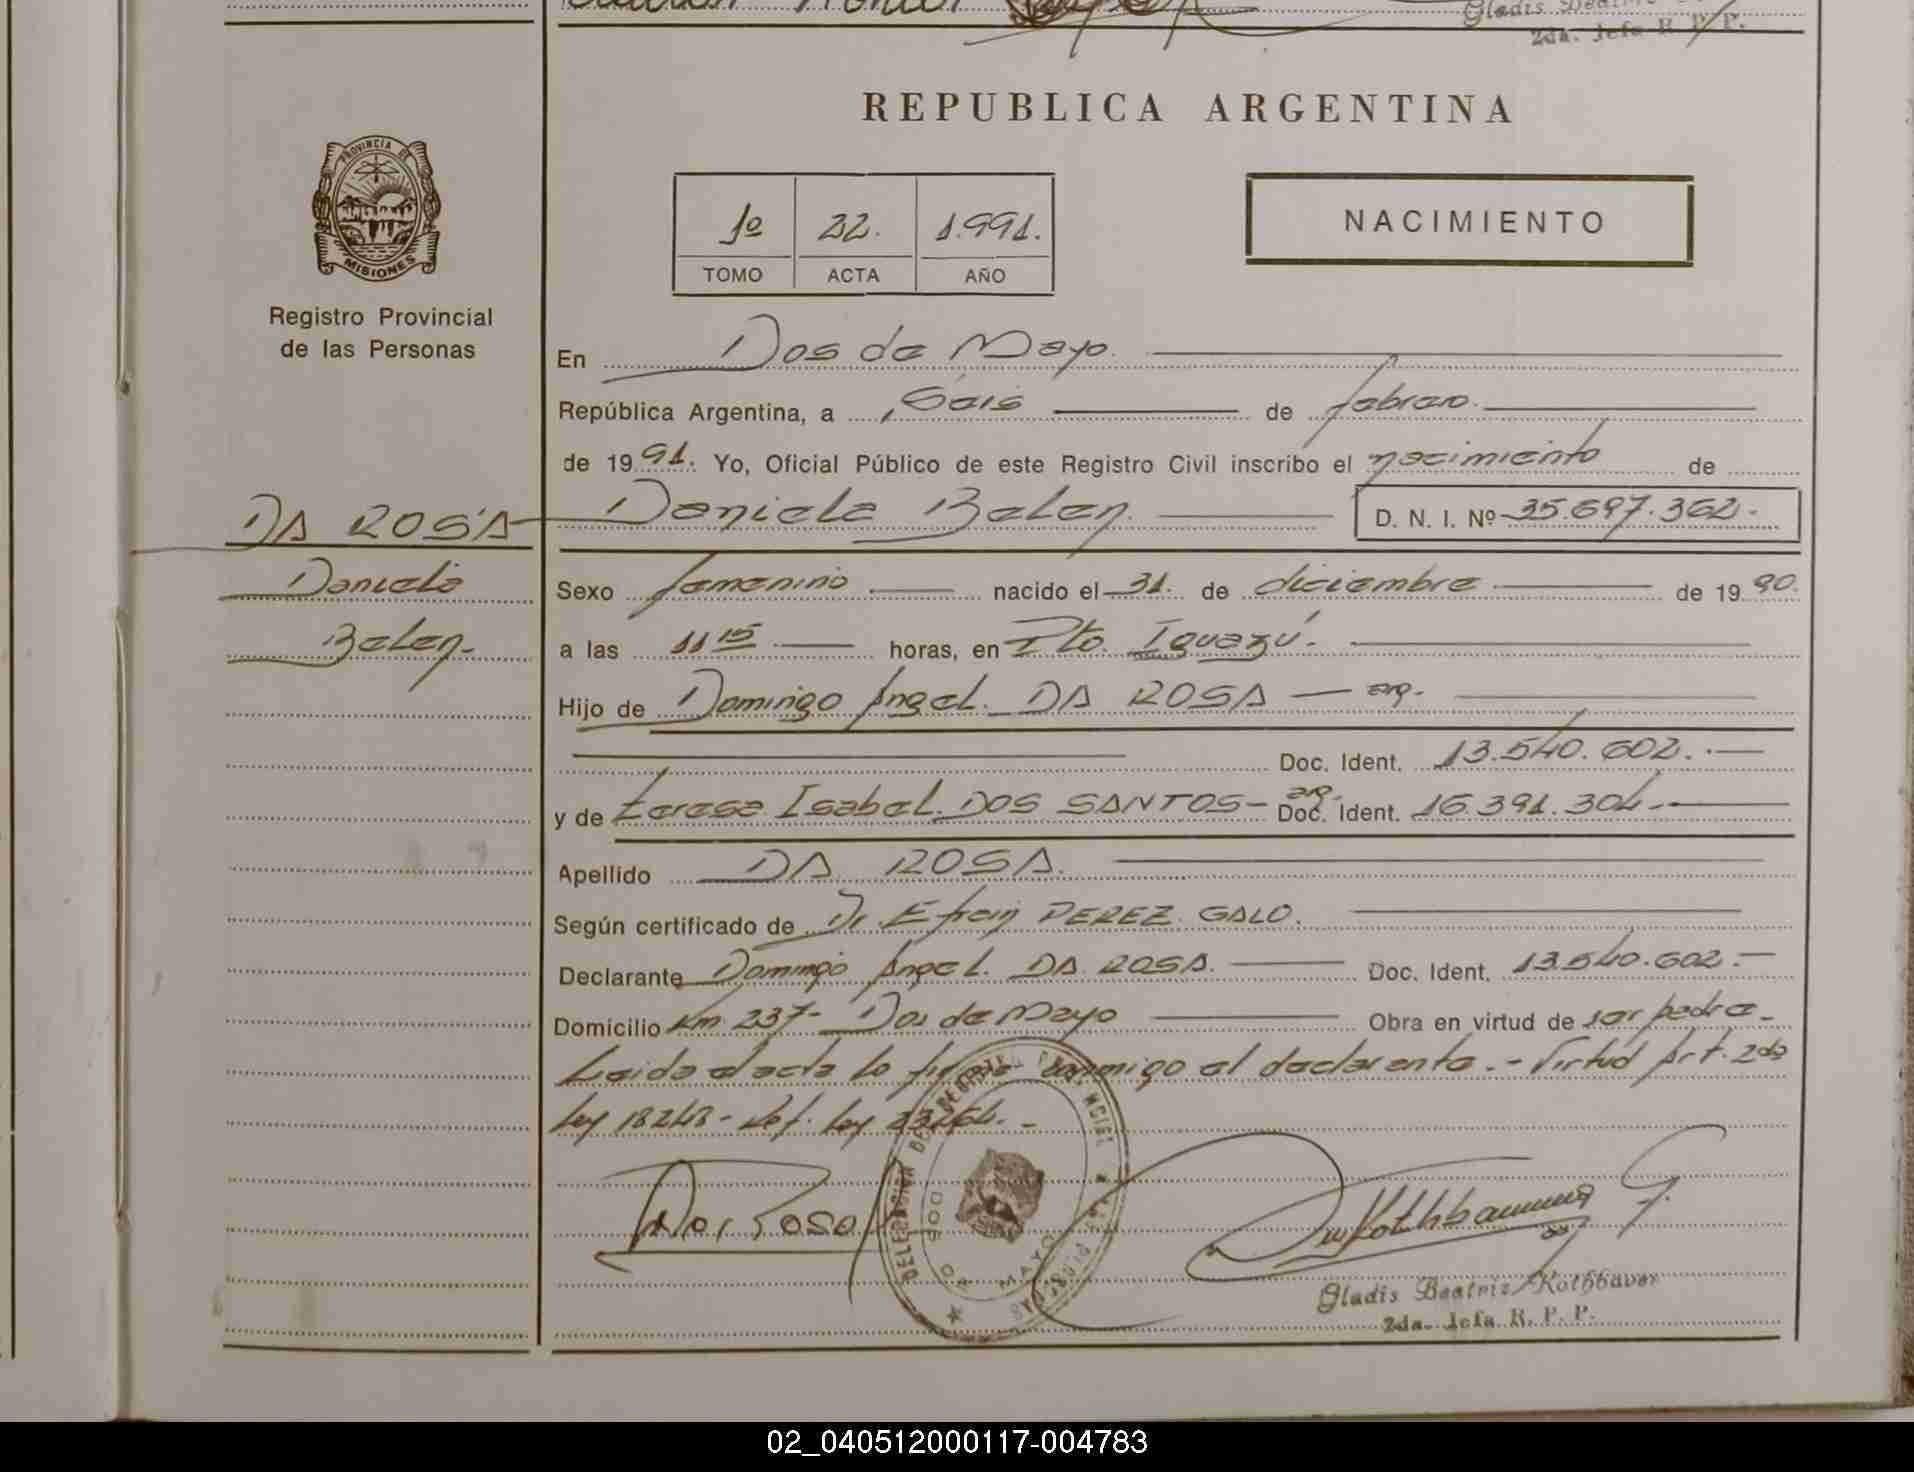 Gladis
2da. Jefa R. P. P.
REPUBLICA ARGENTINA
PROVINCIA DE
MISIONES
Registro Provincial
de las Personas
1º 22. 1.991.
TOMO ACTA AÑO
NACIMIENTO
En Dos de Mayo.
República Argentina, a Seis de febrero.
de 19 91. Yo, Oficial Público de este Registro Civil inscribo el nacimiento de
DA ROSA
Daniela
Belen.
Daniela Belen. D. N. I. Nº 35.697.362.
Sexo femenino nacido el 31. de diciembre de 19 90.
a las 11 15 horas, en Pto. Iguazú.
Hijo de Domingo Angel. DA ROSA - arg.
Doc. Ident. 13.540.602.
y de Teresa Isabel. DOS SANTOS - arg. Doc. Ident. 16.391.304.
Apellido DA ROSA.
Según certificado de Dr. Efrain PEREZ GALO.
Declarante Domingo Angel. DA ROSA. Doc. Ident. 13.540.602.
Domicilio Km 237 - Dos de Mayo Obra en virtud de ser padre.
Leida el acta lo firma conmigo el declarante. - Virtud Art. 2do
Ley 18248 - Ref. Ley 23264. -
DELEGACION DEL REGISTRO PROVINCIAL DE LAS PERSONAS
DOS DE MAYO
Da Rosa
Kothbauer
Gladis Beatriz Kothbaver
2da. Jefa R. P. P.
02_040512000117-004783